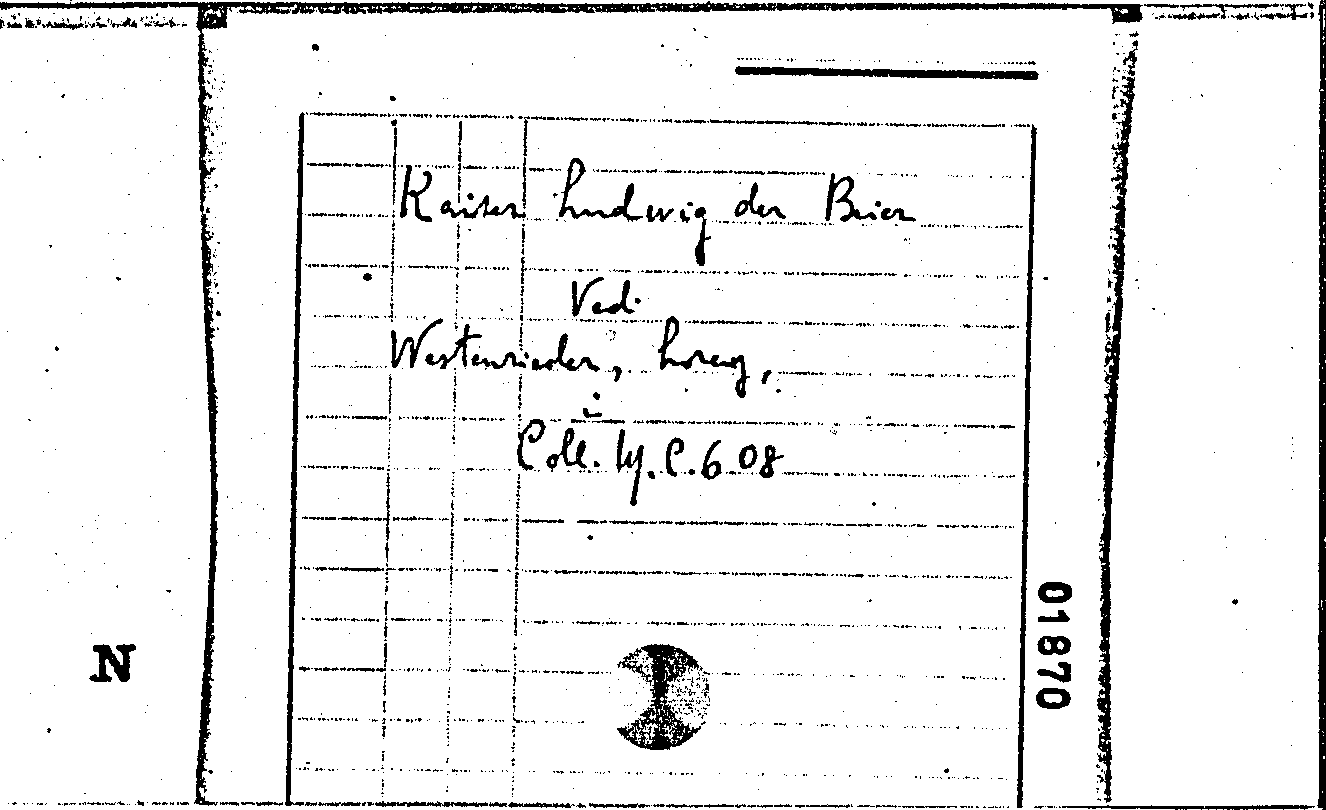 Kaiser Ludwig der Beier
Vedi
Westenrieder, Lorenz,
i
Coll. IV. C. 608
N
01870